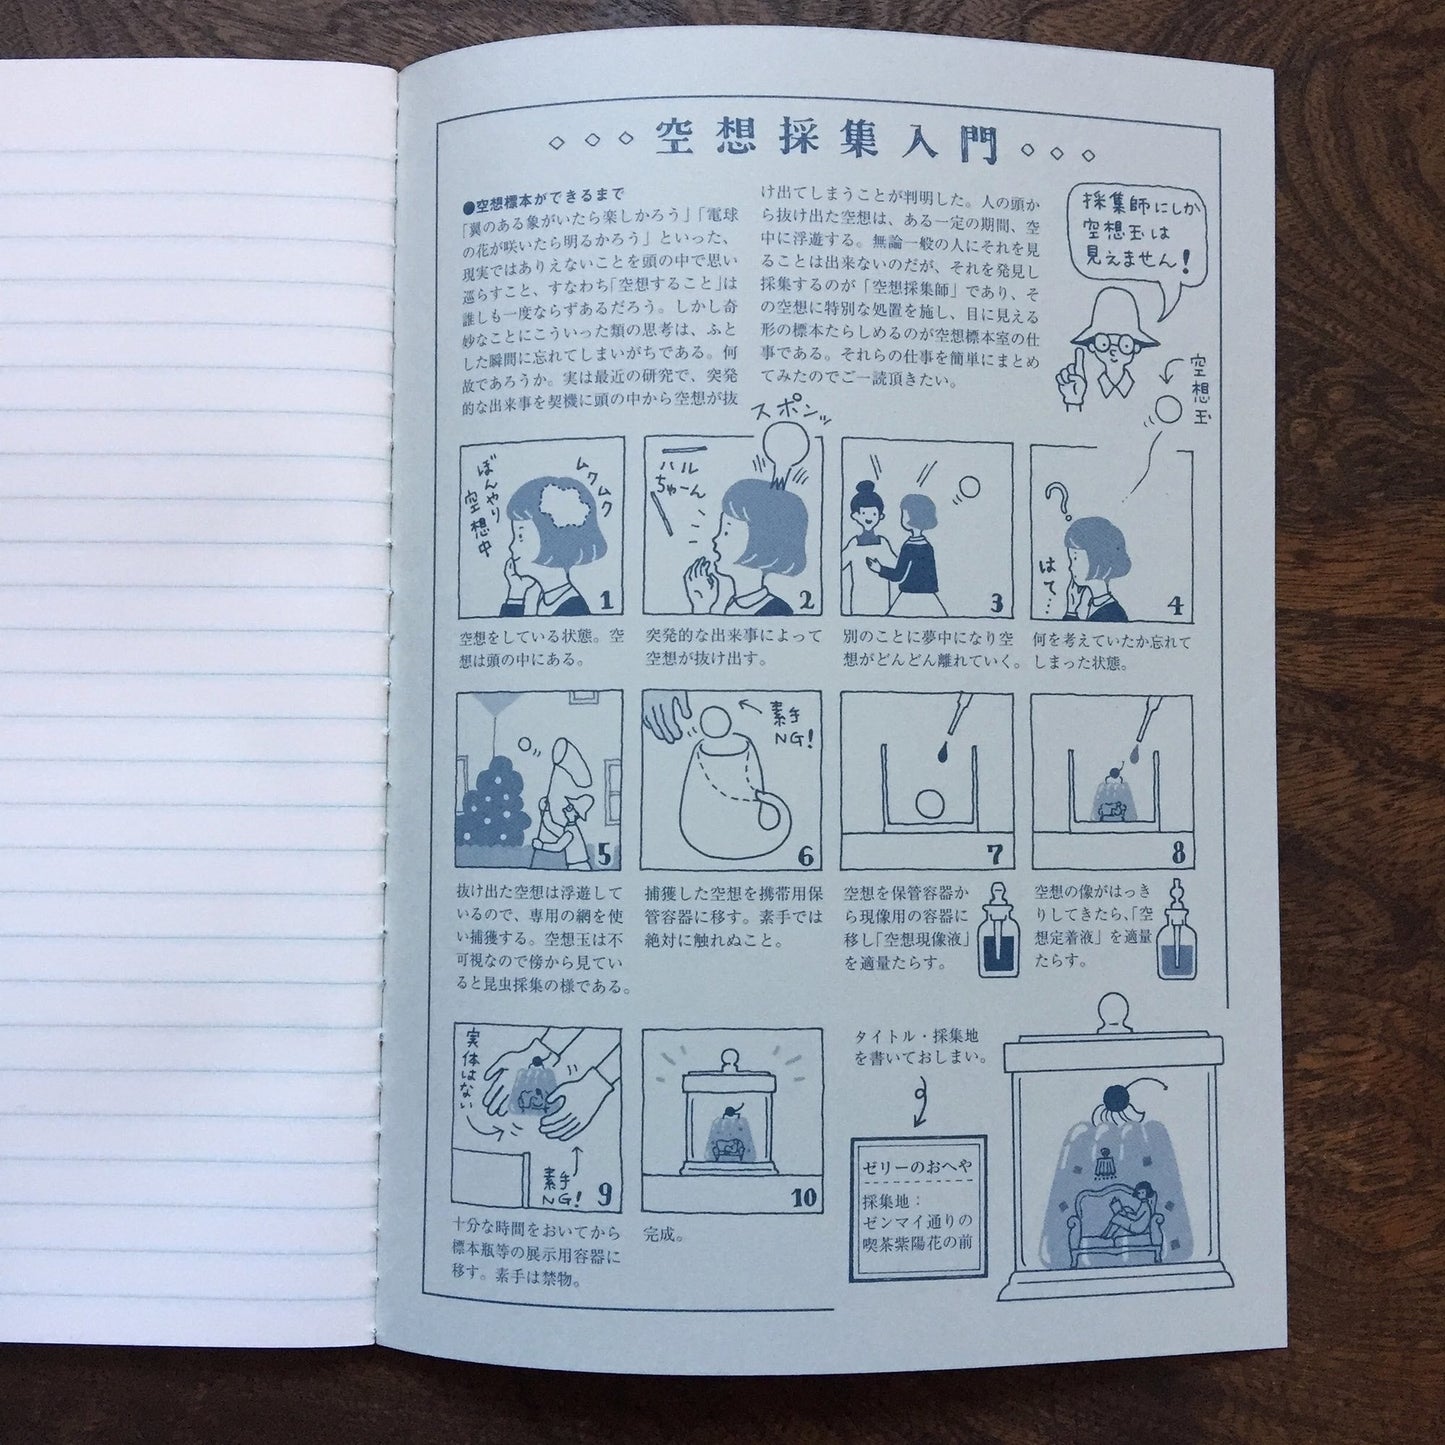 空想採集入門
●空想標本ができるまで
「翼のある象がいたら楽しかろう」「電球
の花が咲いたら明るかろう」といった、
現実ではありえないことを頭の中で思い
巡らすこと、すなわち「空想すること」は
誰しも一度ならずあるだろう。しかし奇
妙なことにこういった類の思考は、ふと
した瞬間に忘れてしまいがちである。何
故であろうか。実は最近の研究で、突発
的な出来事を契機に頭の中から空想が抜
け出てしまうことが判明した。人の頭か
ら抜け出た空想は、ある一定の期間、空
中に浮遊する。無論一般の人にそれを見
ることは出来ないのだが、それを発見し
採集するのが「空想採集師」であり、そ
の空想に特別な処置を施し、目に見える
形の標本たらしめるのが空想標本室の仕
事である。それらの仕事を簡単にまとめ
てみたのでご一読頂きたい。
採集師にしか
空想玉は
見えません!
空想玉
ぼんやり
空想中
ムクムク
1
空想をしている状態。空
想は頭の中にある。
スポンッ
ハル
ちゃーん
2
突発的な出来事によって
空想が抜け出す。
3
別のことに夢中になり空
想がどんどん離れていく。
?
はて…
4
何を考えていたか忘れて
しまった状態。
5
抜け出た空想は浮遊して
いるので、専用の網を使
い捕獲する。空想玉は不
可視なので傍から見てい
ると昆虫採集の様である。
素手
NG!
6
捕獲した空想を携帯用保
管容器に移す。素手では
絶対に触れぬこと。
7
空想を保管容器か
ら現像用の容器に
移し「空想現像液」
を適量たらす。
8
空想の像がはっき
りしてきたら、「空
想定着液」を適量
たらす。
実体はない
素手
NG!
9
十分な時間をおいてから
標本瓶等の展示用容器に
移す。素手は禁物。
10
完成。
タイトル・採集地
を書いておしまい。
ゼリーのおへや
採集地：
ゼンマイ通りの
喫茶紫陽花の前